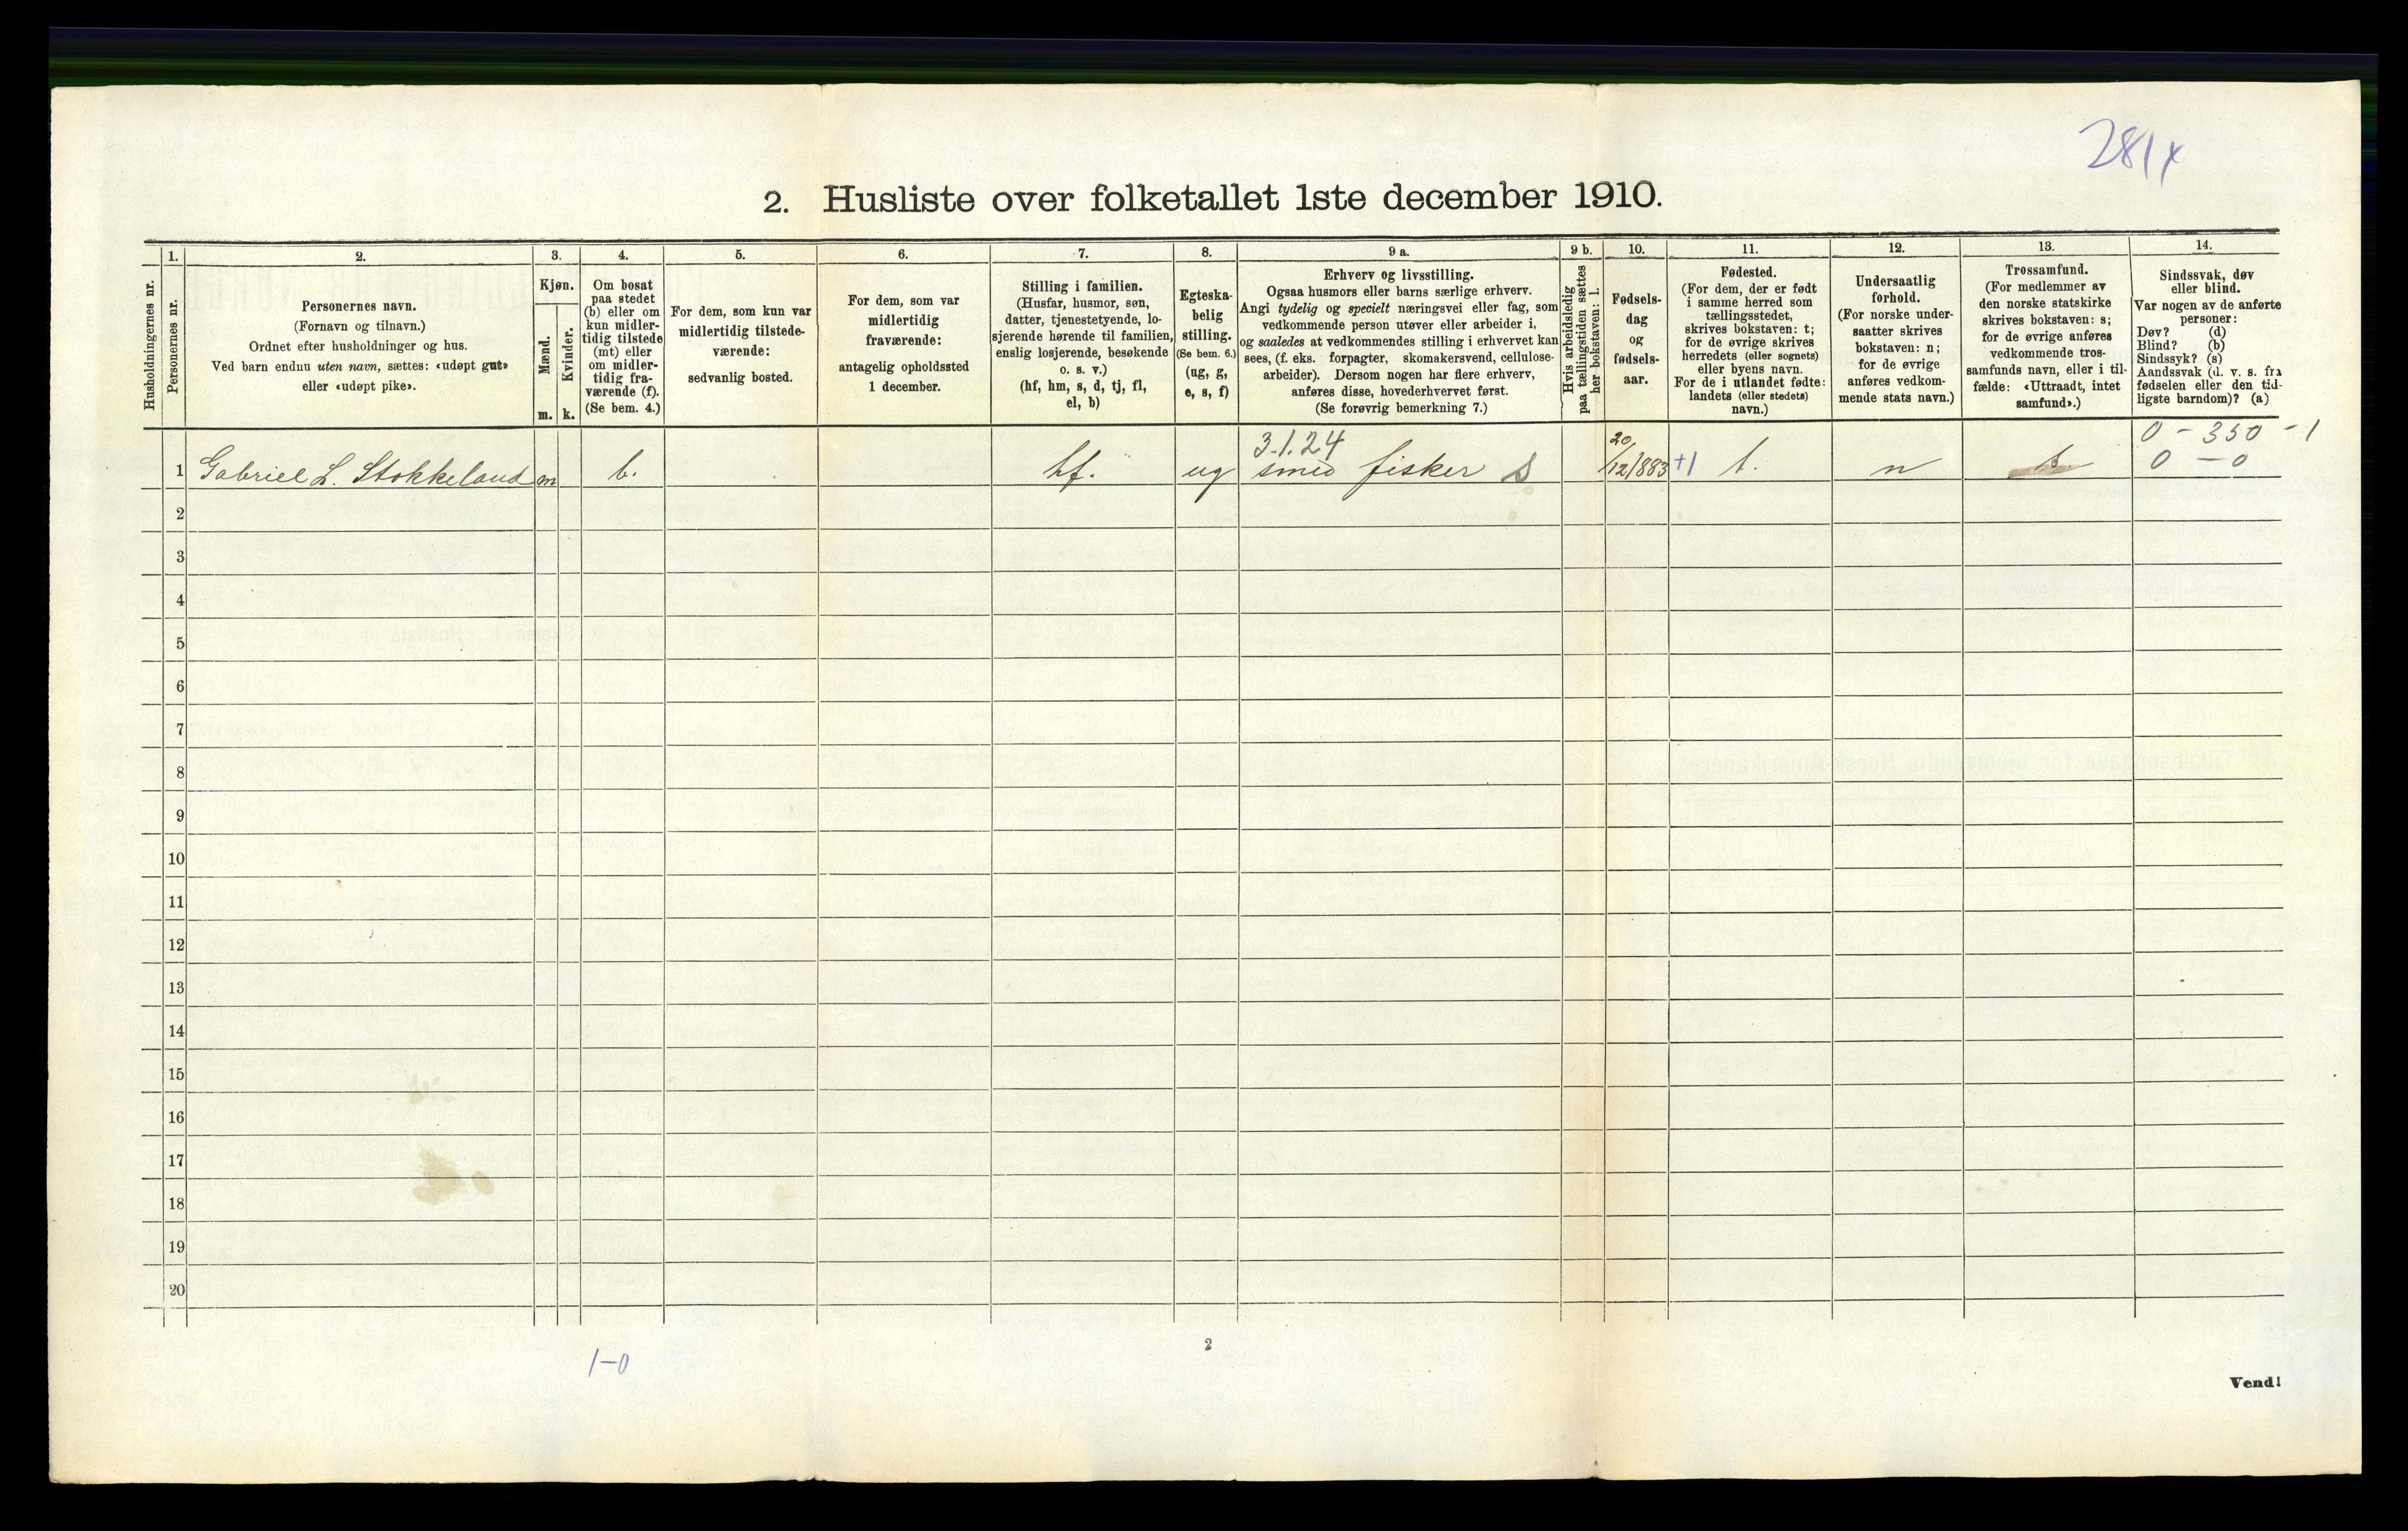 281x
2. Husliste over folketallet 1ste december 1910.
Husholdningernes nr.
1.
Personernes nr.
2.
Personernes navn.
(Fornavn og tilnavn.)
Ordnet efter husholdninger og hus.
Ved barn endnu uten navn, sættes: «udøpt gut»
eller «udøpt pike».
3.
Kjøn.
Mænd.
m.
Kvinder.
k.
4.
Om bosat
paa stedet
(b) eller om
kun midler-
tidig tilstede
(mt) eller
om midler-
tidig fra-
værende (f).
(Se bem. 4.)
5.
For dem, som kun var
midlertidig tilstede-
værende:
sedvanlig bosted.
6.
For dem, som var
midlertidig
fraværende:
antagelig opholdssted
1 december.
7.
Stilling i familien.
(Husfar, husmor, søn,
datter, tjenestetyende, lo-
sjerende hørende til familien,
enslig losjerende, besøkende
o. s. v.)
(hf, hm, s, d, tj, fl,
el, b)
8.
Egteska-
belig
stilling.
(Se bem. 6.)
(ug, g,
e, s, f)
9 a.
Erhverv og livsstilling.
Ogsaa husmors eller barns særlige erhverv.
Angi tydelig og specielt næringsvei eller fag, som
vedkommende person utøver eller arbeider i,
og saaledes at vedkommendes stilling i erhvervet kan
sees, (f. eks. forpagter, skomakersvend, cellulose-
arbeider). Dersom nogen har flere erhverv,
anføres disse, hovederhvervet først.
(Se forøvrig bemerkning 7.)
9 b.
Hvis arbeidsledig
paa tællingstiden sættes
her bokstaven: l.
10.
Fødsels-
dag
og
fødsels-
aar.
11.
Fødested.
(For dem, der er født
i samme herred som
tællingsstedet,
skrives bokstaven: t;
for de øvrige skrives
herredets (eller sognets)
eller byens navn.
For de i utlandet fødte:
landets (eller stedets)
navn.)
12.
Undersaatlig
forhold.
(For norske under-
saatter skrives
bokstaven: n;
for de øvrige
anføres vedkom-
mende stats navn.)
13.
Trossamfund.
(For medlemmer av
den norske statskirke
skrives bokstaven: s;
for de øvrige anføres
vedkommende tros-
samfunds navn, eller i til-
fælde: «Uttraadt, intet
samfund».)
14.
Sindssvak, døv
eller blind.
Var nogen av de anførte
personer:
Døv? (d)
Blind? (b)
Sindssyk? (s)
Aandssvak (d. v. s. fra
fødselen eller den tid-
ligste barndom)? (a)
3.1.24 0 - 350 - 1
1 Gabriel L. Stokkeland m b. hf. ug smed fisker S 20/12/883 +1 t. n s 0 - 0
2
3
4
5
6
7
8
9
10
11
12
13
14
15
16
17
18
19
20
2
1-0
Vend!